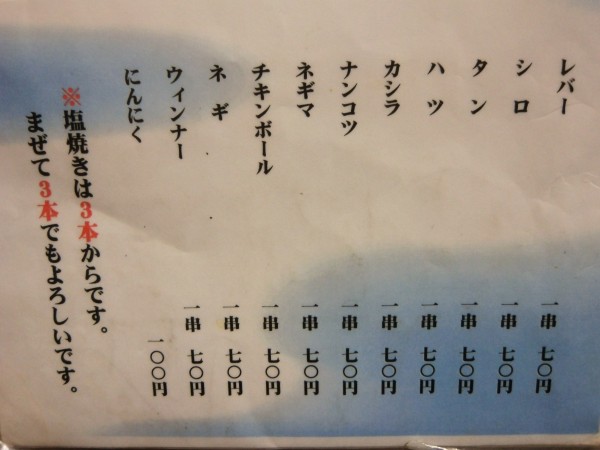 レバー 一串 七〇円
シロ 一串 七〇円
タン 一串 七〇円
ハツ 一串 七〇円
カシラ 一串 七〇円
ナンコツ 一串 七〇円
ネギマ 一串 七〇円
チキンボール 一串 七〇円
ネギ 一串 七〇円
ウィンナー 一串 七〇円
にんにく 一〇〇円
※塩焼きは3本からです。
まぜて3本でもよろしいです。